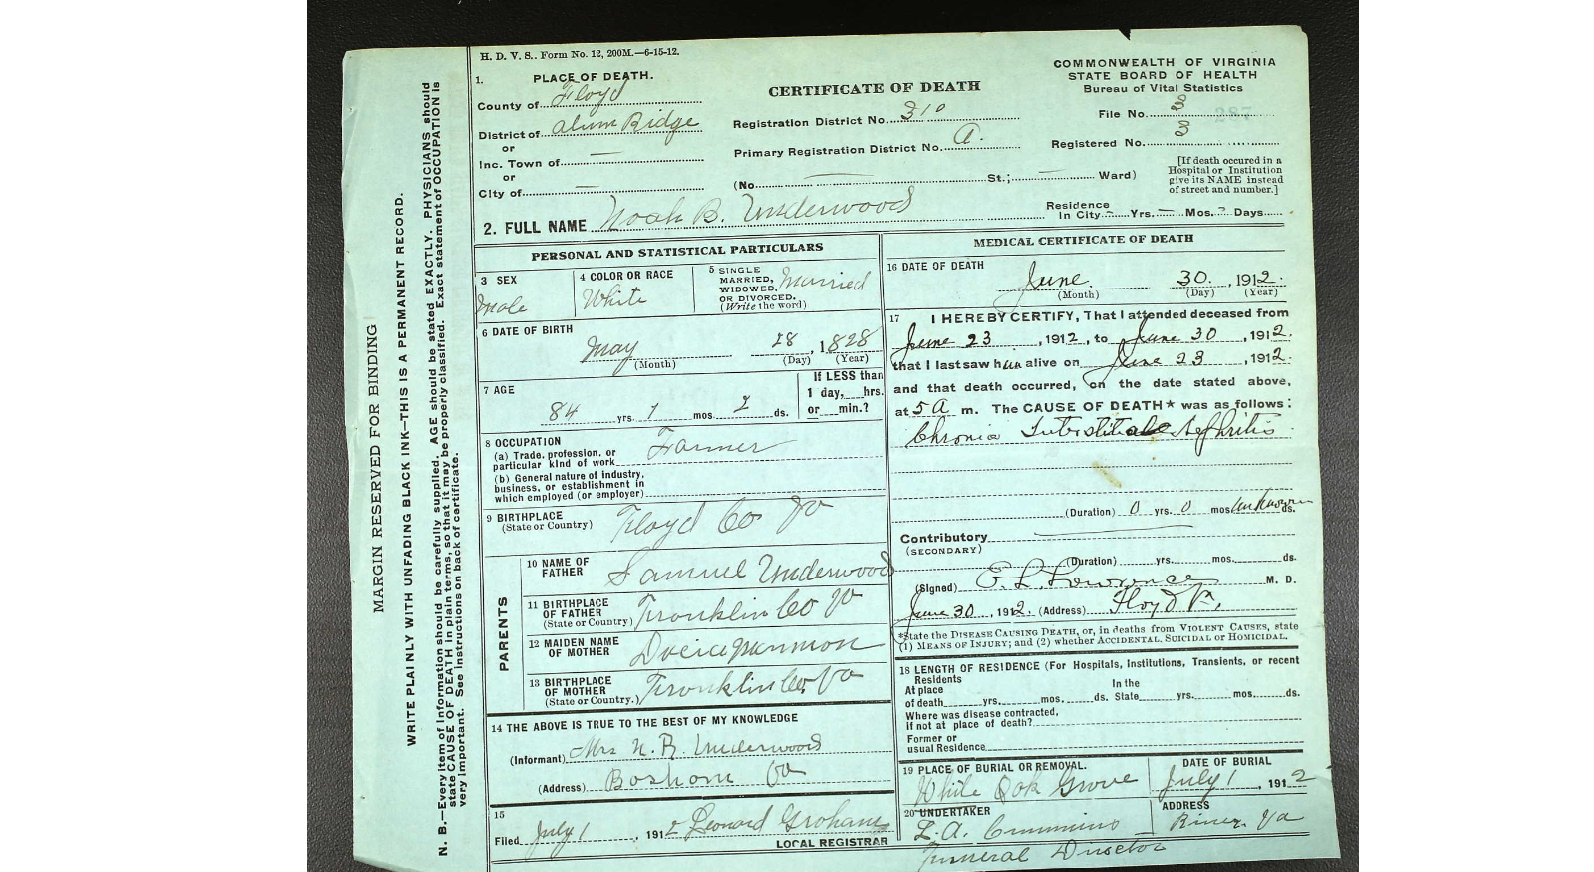 H. D. V. S.. Form No. 12, 200M.—6-15-12.
1. PLACE OF DEATH.
County of Floyd
District of Alum Ridge
or
Inc. Town of —
or
City of —
CERTIFICATE OF DEATH
Registration District No. 310
Primary Registration District No. A.
(No. — St.; — Ward)
COMMONWEALTH OF VIRGINIA
STATE BOARD OF HEALTH
Bureau of Vital Statistics
File No. 3
Registered No. 3
[If death occured in a
Hospital or Institution
give its NAME instead
of street and number.]
2. FULL NAME Noah B. Underwood
Residence
In City — Yrs. — Mos. Days
PERSONAL AND STATISTICAL PARTICULARS
3 SEX
Male
4 COLOR OR RACE
White
5 SINGLE
MARRIED,
WIDOWED,
OR DIVORCED.
(Write the word)
Married
6 DATE OF BIRTH
May 28, 1828
(Month) (Day) (Year)
7 AGE
84 yrs. 1 mos. 2 ds.
If LESS than
1 day, hrs.
or min.?
8 OCCUPATION
(a) Trade, profession, or
particular kind of work Farmer
(b) General nature of industry,
business, or establishment in
which employed (or employer)
9 BIRTHPLACE
(State or Country) Floyd Co Va
PARENTS
10 NAME OF
FATHER Samuel Underwood
11 BIRTHPLACE
OF FATHER
(State or Country) Franklin Co Va
12 MAIDEN NAME
OF MOTHER
13 BIRTHPLACE
OF MOTHER
(State or Country.) Franklin Co. Va
14 THE ABOVE IS TRUE TO THE BEST OF MY KNOWLEDGE
(Informant) Mrs N. B. Underwood
(Address) Basham Va
15
Filed July 1, 1912 Leonard Graham
LOCAL REGISTRAR
MEDICAL CERTIFICATE OF DEATH
16 DATE OF DEATH
June 30, 1912
(Month) (Day) (Year)
17 I HEREBY CERTIFY, That I attended deceased from
June 23, 1912, to June 30, 1912.
that I last saw him alive on June 23, 1912.
and that death occurred, on the date stated above,
at 5 A m. The CAUSE OF DEATH* was as follows:
Chronic Interstitial Nephritis
(Duration) 0 yrs. 0 mos. unknown ds.
Contributory
(SECONDARY)
(Duration) yrs. mos. ds.
(Signed) Lawrence M. D.
June 30, 1912. (Address) Floyd Va.
*State the DISEASE CAUSING DEATH, or, in deaths from VIOLENT CAUSES, state
(1) MEANS OF INJURY; and (2) whether ACCIDENTAL, SUICIDAL or HOMICIDAL.
18 LENGTH OF RESIDENCE (For Hospitals, Institutions, Transients, or recent
Residents
At place In the
of death yrs. mos. ds. State yrs. mos. ds.
Where was disease contracted,
if not at place of death?
Former or
usual Residence
19 PLACE OF BURIAL OR REMOVAL.
White Oak Grove
DATE OF BURIAL
July 1, 1912
20 UNDERTAKER
L. A. Cummins
Funeral Director
ADDRESS
Riner Va
MARGIN RESERVED FOR BINDING
WRITE PLAINLY WITH UNFADING BLACK INK—THIS IS A PERMANENT RECORD.
N. B.—Every item of information should be carefully supplied. AGE should be stated EXACTLY. PHYSICIANS should
state CAUSE OF DEATH in plain terms, so that it may be properly classified. Exact statement of OCCUPATION is
very important. See instructions on back of certificate.